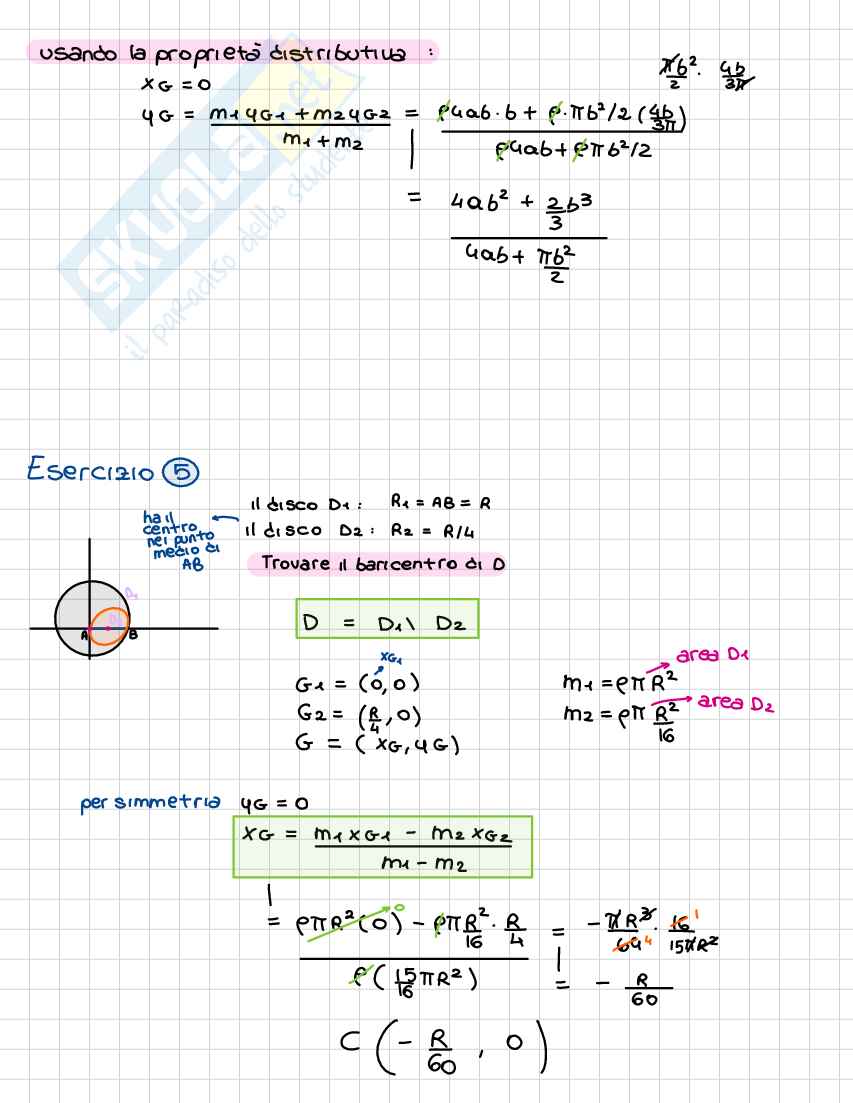 usando la proprietà distributiva :
xG = 0
πb²/2 · 4b/3π
yG = (m1yG1 + m2yG2)/(m1 + m2) = (ρ4ab·b + ρ·πb²/2 (4b/3π))/(ρ4ab + ρπb²/2)
= (4ab² + 2/3 b³)/(4ab + πb²/2)
SKUOLA.net
il paradiso dello studente
Esercizio 5
il disco D1 : R1 = AB = R
il disco D2 : R2 = R/4
ha il
centro
nel punto
medio di
AB
Trovare il baricentro di D
D1
D2
A B
D = D1\ D2
xG1
G1 = (0,0)
G2 = (R/4, 0)
G = (xG, yG)
area D1
m1 = ρπR²
m2 = ρπ R²/16
area D2
per simmetria yG = 0
xG = (m1xG1 - m2xG2)/(m1 - m2)
= (ρπR²(0) - ρπR²/16 · R/4)/(ρ(15/16 πR²)) = -πR³/64 · 16/15πR²
0
4
1
= - R/60
C (- R/60 , 0)